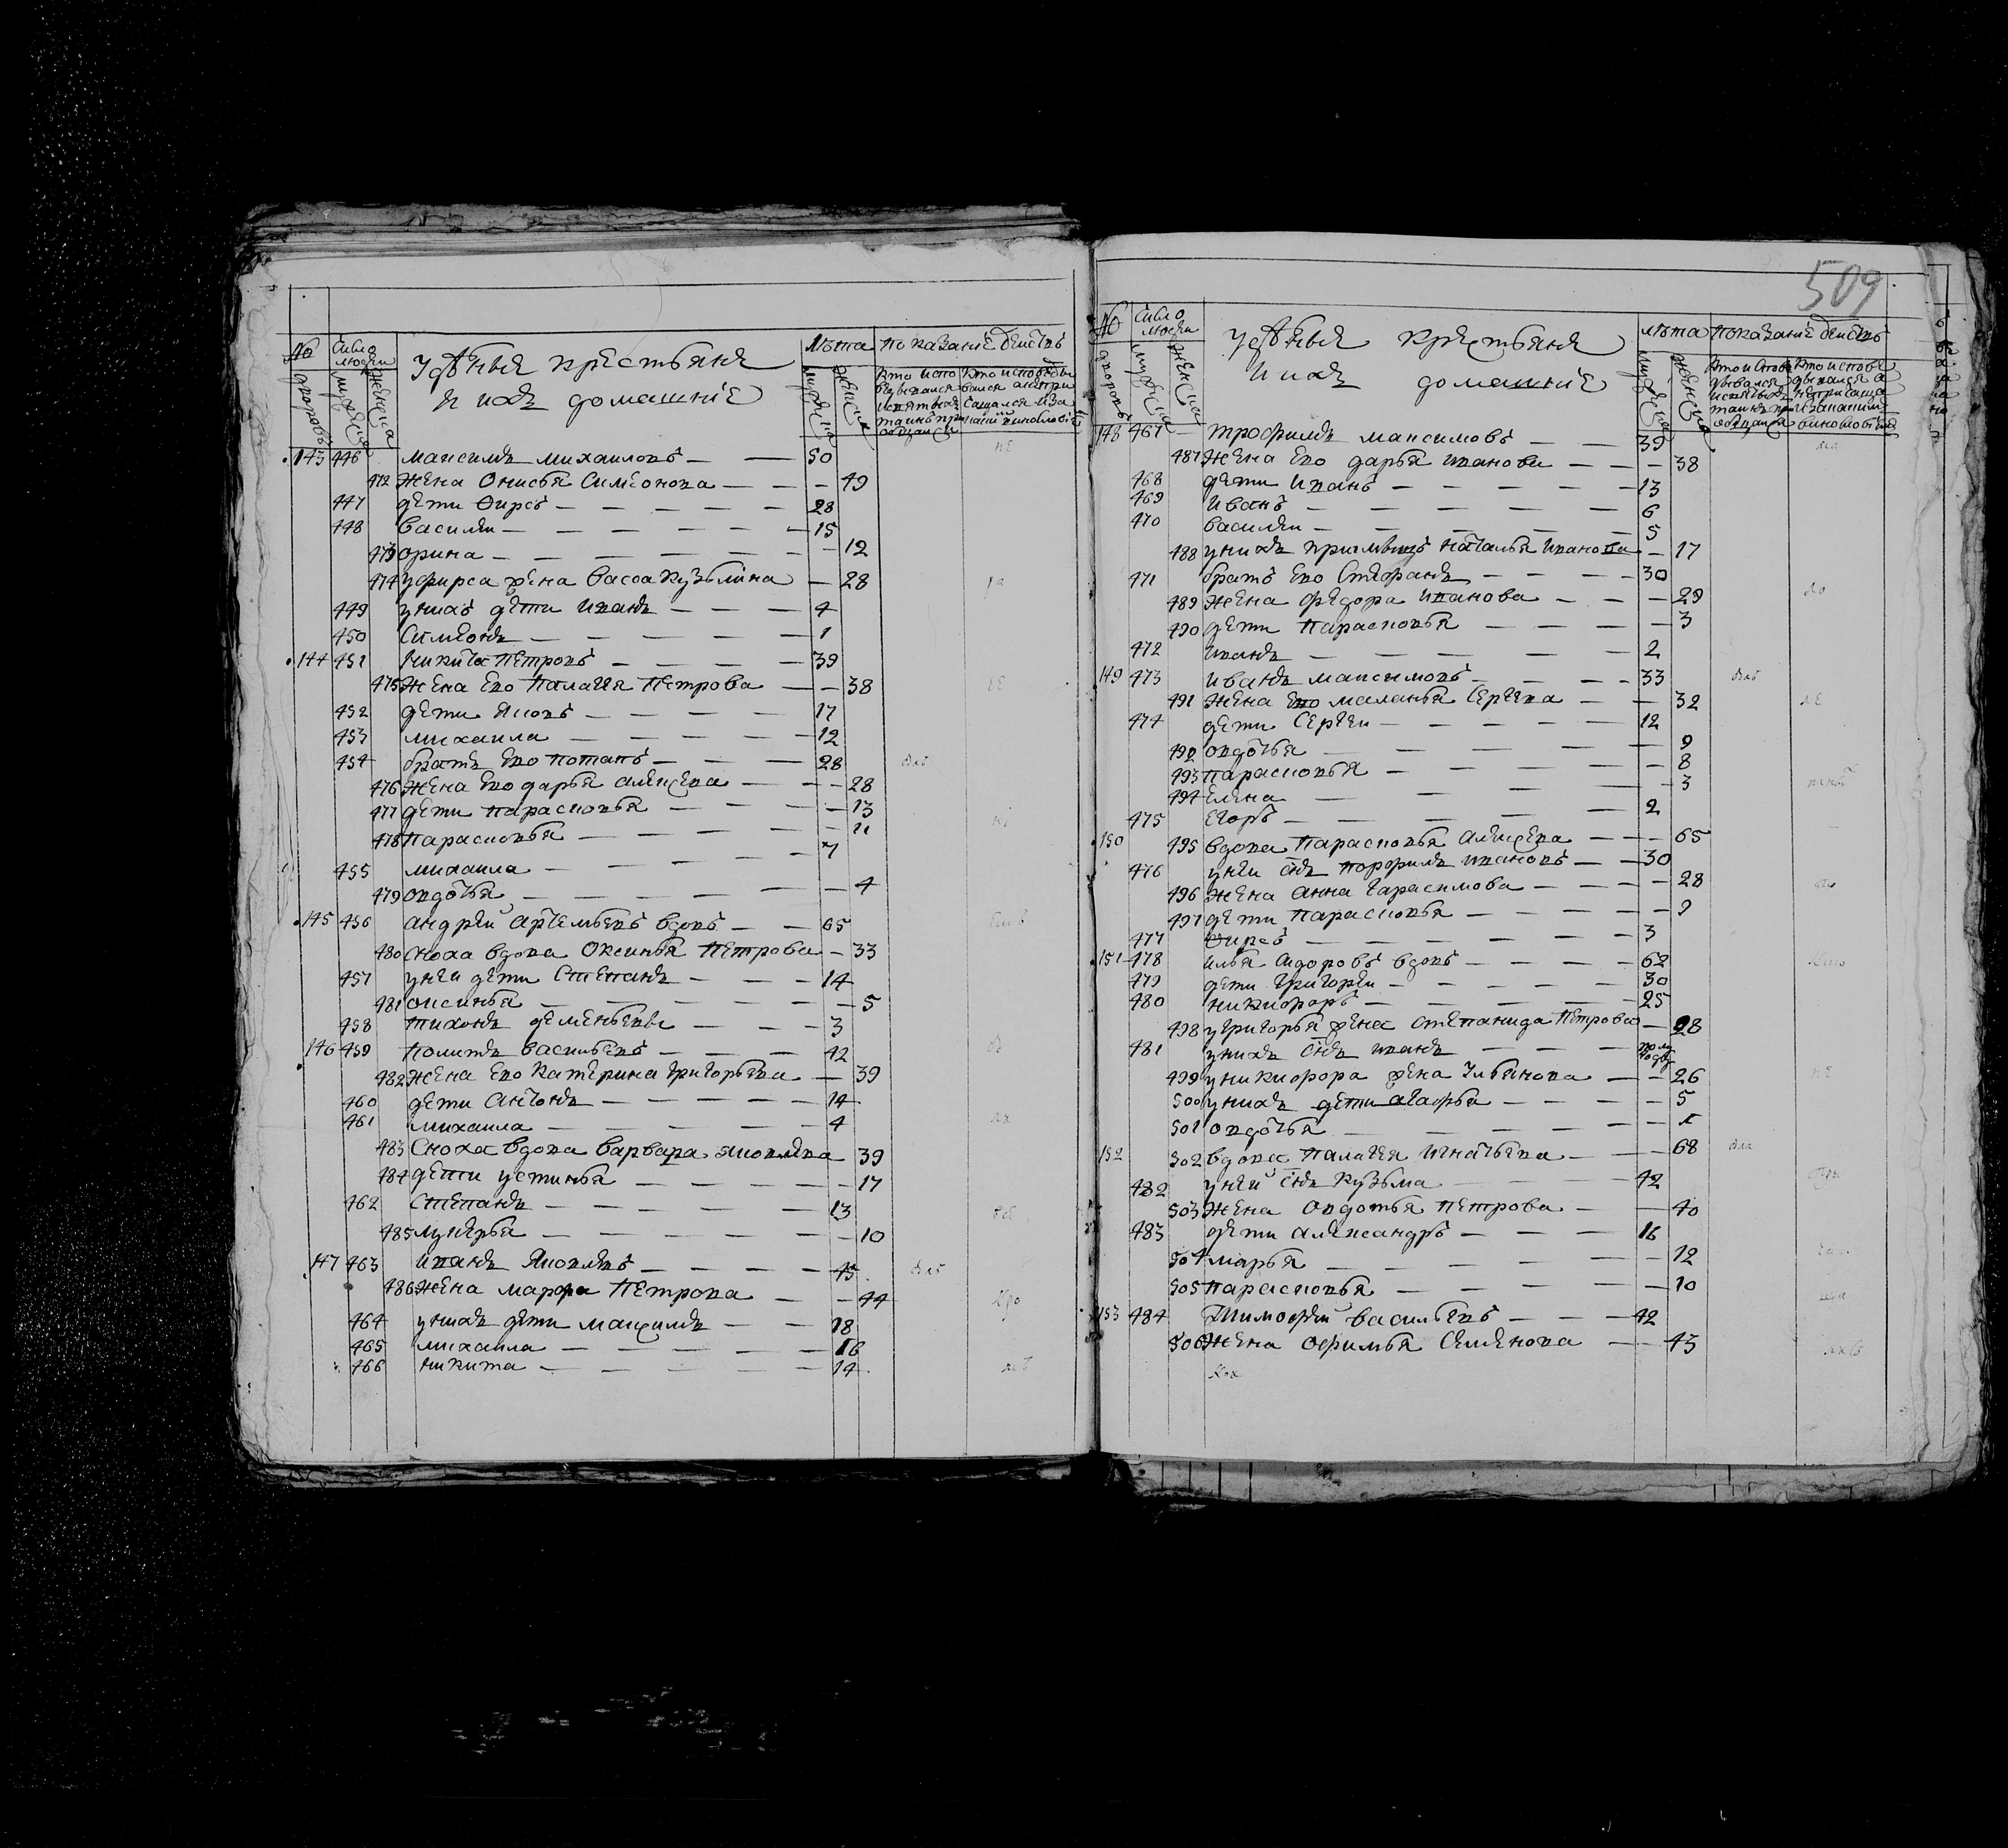 № Число людей Удѣльныя крестьяне Лѣта показание действъ
дворовъ мужеска женска и ихъ домашніе мужеска женска
143 446 максимъ михаиловъ — — 50
472 жена Онисья Симеонова — — — 49
447 дети Фирсъ — — — — — 28
448 Василеи — — — — — 15
473 орина — — — — — — 12
474 уфирса жена Васса Кузьмина — 28
449 унихъ дети иванъ — — — 4
450 Симеонъ — — — — — 1
144 451 Никита Петровъ — — — — 39
475 жена Ево Палагея Петрова — — 38
452 дети Яковъ — — — — 17
453 михаила — — — — — 12
454 братъ Ево потапъ — — — 28
476 жена Ево дарья алексева — — — 28
477 дети парасковья — — — — 13
478 Парасковья — — — — 11
455 михаила — — — — — 7
479 овдотья — — — — — 4
145 456 андреи артемьевъ вдовъ — — 65
480 сноха вдова Оксинья Петрова — 33
457 унеи дети Степанъ — — — 14
481 оксинья — — — — — 5
458 тихонъ дементьевъ — — — 3
146 459 Политъ васильевъ — — — 42
482 жена Ево Катерина григорьева — 39
460 дети Антонъ — — — — 14
461 михаила — — — — — 4
483 Сноха вдова Варвара яковлева 39
484 дети устинья — — — — — 17
462 Степанъ — — — — — 13
485 лукерья — — — — — 10
147 463 иванъ Яковлевъ — — — — 45
486 жена марфа Петрова — — 44
464 унихъ дети максимъ — — 18
465 михаила — — — — — 16
466 никита — — — — — 14
509
№ Число людеи Удѣльныя крестьяне Лѣта показание действъ
дворовъ мужеска женска и ихъ домашніе мужеска женска
148 467 трофимъ максимовъ — — 39
487 жена Ево дарья иванова — — — 38
468 дети иванъ — — — — — 13
469 иванъ — — — — — 6
470 василеи — — — — — 5
488 унихъ Наталья иванова — 17
471 братъ Ево Стефанъ — — — 30
489 жена федора иванова — — — 29
490 дети Парасковья — — — — 3
472 иванъ — — — — — 2
149 473 иванъ максимовъ — — — — 33
491 жена Ево маланья Сергеева — — 32
474 дети Сергеи — — — — — 12
492 овдотья — — — — — 9
493 парасковья — — — — — 8
494 Елена — — — — — 3
475 Егоръ — — — — — 2
150 495 вдова Парасковья алексева — — 65
476 унеи снъ порфилъ ивановъ — — 30
496 жена анна Гарасимова — — — — 28
497 дети Парасковья — — — — — 9
477 Фирсъ — — — — — — 3
151 478 илья сидоровъ вдовъ — — — — 62
479 дети григореи — — — — — 30
480 никифоръ — — — — — — 25
498 угригорья жена степанида Петрова — 28
481 унихъ снъ иванъ — — — —
499 уникифора жена Ульянова — — 26
500 унихъ дети агафья — — — — — 5
501 овдотья — — — — —
152 502 вдова Палагея игнатьева — — — 68
482 унеи снъ Кузьма — — — 42
503 жена Овдотья Петрова — — 40
483 дети александръ — — — 16
504 марья — — — — — — 12
505 парасковья — — — — — 10
153 484 Тимофеи васильевъ — — — 42
506 жена офимья Семенова — — 43